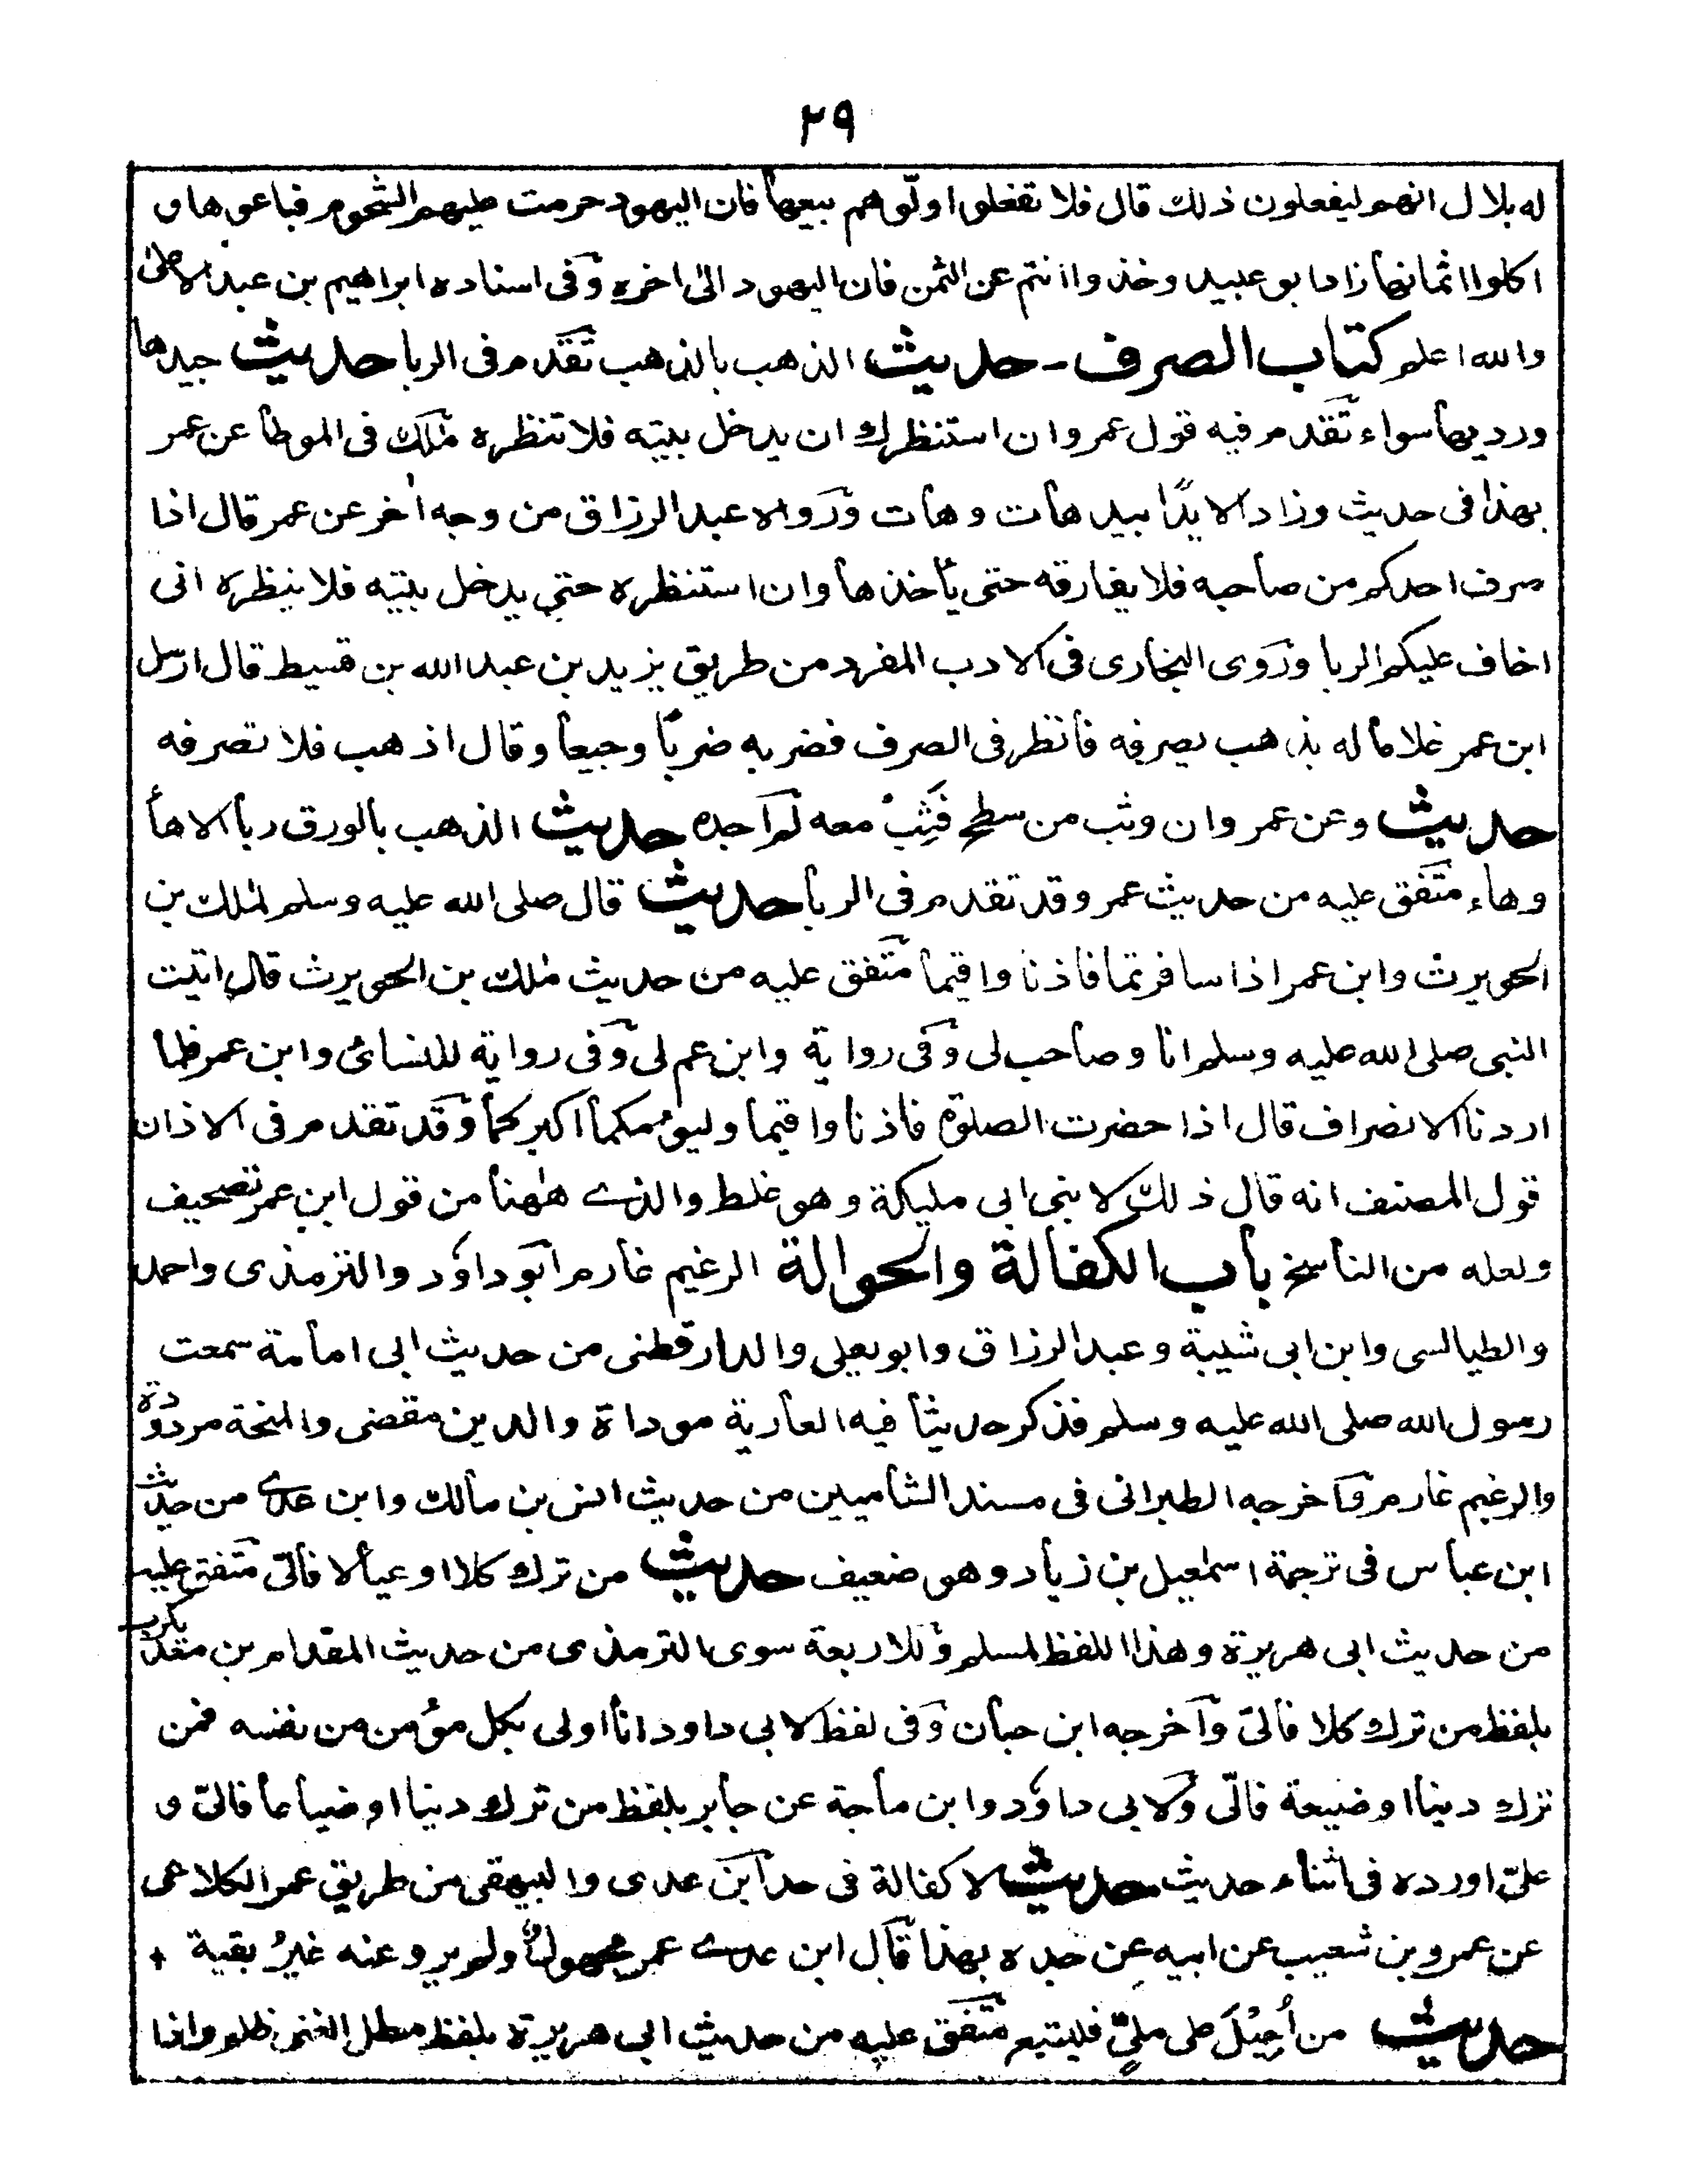 ٢٩
له بلال انهم ليفعلون ذلك قال فلا تفعلوا ولّوهم بيعها فان اليهود حرمت عليهم الشحوم فباعوها و
اكلوا اثمانها زاد ابو عبيد وخذوا انتم عن الثمن فان اليهود الى اخره وفى اسناده ابراهيم بن عبد الاعلى
والله اعلم كتاب الصرف - حديث الذهب بالذهب تقدم فى الربا حديث جيدها
ورديها سواء تقدم فيه قول عمر وان استنظرك ان يدخل بيته فلا تنظره ملك فى الموطا عن عمر
بهذا فى حديث وزاد الا يدًا بيد هات وهات ورواه عبد الرزاق من وجه اخر عن عمر قال اذا
صرف احدكم من صاحبه فلا يفارقه حتى يأخذها وان استنظره حتى يدخل بيته فلا ينظره انى
اخاف عليكم الربا وروى البخارى فى الادب المفرد من طريق يزيد بن عبد الله بن قسيط قال ارسل
ابن عمر غلاما له بذهب يصرفه فأنظر فى الصرف فضربه ضربًا وجيعا وقال اذهب فلا تصرفه
حديث وعن عمر وان وثب من سطح فثِبْ معه لم اجده حديث الذهب بالورق ربا الا ها
وهاء متفق عليه من حديث عمر وقد تقدم فى الربا حديث قال صلى الله عليه وسلم لملك بن
الحويرث وابن عمر اذا سافرتما فاذنا واقيما متفق عليه من حديث ملك بن الحويرث قال اتيت
النبى صلى الله عليه وسلم انا وصاحب لى وفى رواية وابن عم لى وفى رواية للنسائى وابن عمر فلما
اردنا الانصراف قال اذا حضرت الصلوة فاذنا واقيما وليؤمكما اكبركما وقد تقدم فى الاذان
قول المصنف انه قال ذلك لابنى ابى مليكة وهو غلط والذے ههنا من قول ابن عمر تصحيف
ولعله من الناسخ باب الكفالة والحوالة الزعيم غارم ابو داؤد والترمذى واحمد
والطيالسى وابن ابى شيبة وعبد الرزاق وابو يعلى والدارقطنى من حديث ابى امامة سمعت
رسول الله صلى الله عليه وسلم فذكر حديثا فيه العارية موداة والدين مقضى والمنحة مردودة
والزعيم غارم واخرجه الطبرانى فى مسند الشاميين من حديث انس بن مالك وابن عدے من حديث
ابن عباس فى ترجمة اسمعيل بن زياد وهو ضعيف حديث من ترك كلا او عيالا فالىّ متفق عليه
من حديث ابى هريرة وهذا اللفظ لمسلم وللاربعة سوى الترمذى من حديث المقدام بن معديكرب
بلفظ من ترك كلا فالىّ واخرجه ابن حبان وفى لفظ لابى داود انا اولى بكل مؤمن من نفسه فمن
ترك دينا او ضيعة فالىّ ولابى داؤد وابن ماجة عن جابر بلفظ من ترك دينا او ضياعا فالىّ و
علىّ اورده فى اثناء حديث حديث لا كفالة فى حد ابن عدى والبيهقى من طريق عمر الكلاعى
عن عمرو بن شعيب عن ابيه عن جده بهذا قال ابن عدے عمر مجهول ولم يرو عنه غيرُ بقية +
حديث من أُحِيْلَ على ملىّ فليتبع متفق عليه من حديث ابى هريرة بلفظ مطل الغنى ظلم واذا